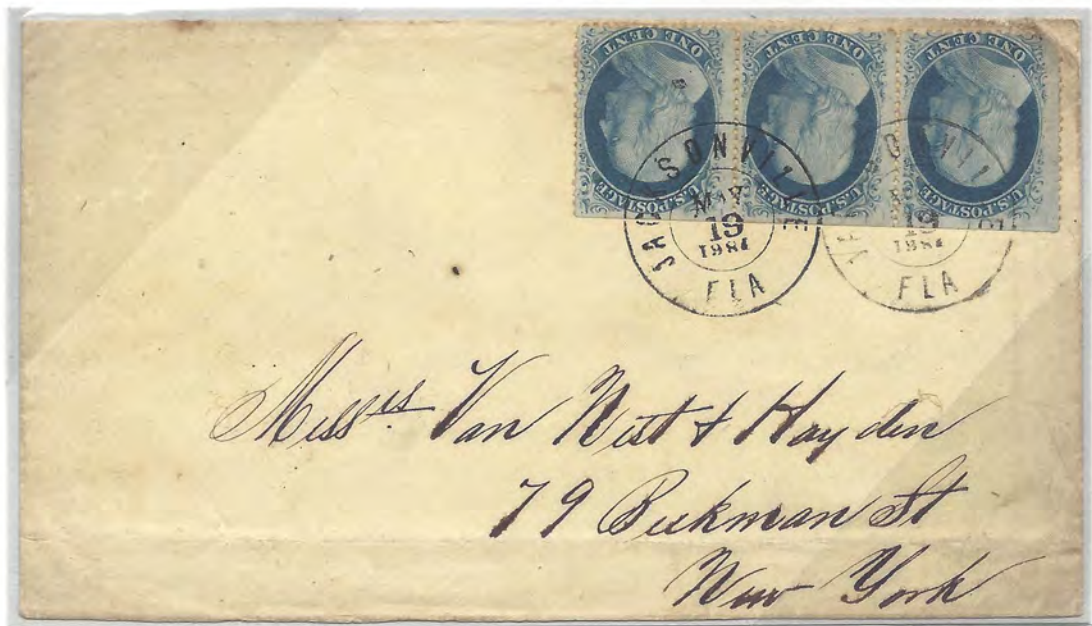 ONE CENT
U.S. POSTAGE
ONE CENT
U.S. POSTAGE
ONE CENT
U.S. POSTAGE
JACKSONVILLE
MAY
19
1981
FLA
19
FLA
Messrs. Van Nest & Hayden
79 Beekman St
New York